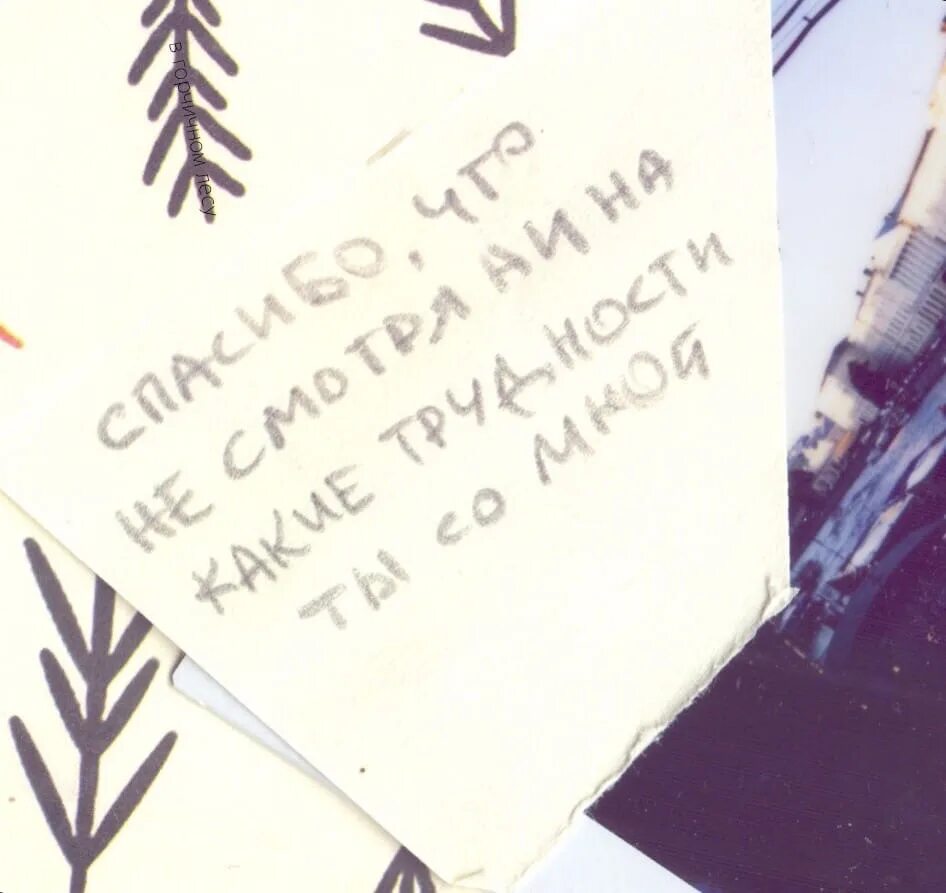 в горчичном лесу
СПАСИБО, ЧТО
НЕ СМОТРЯ НИ НА
КАКИЕ ТРУДНОСТИ
ТЫ СО МНОЙ